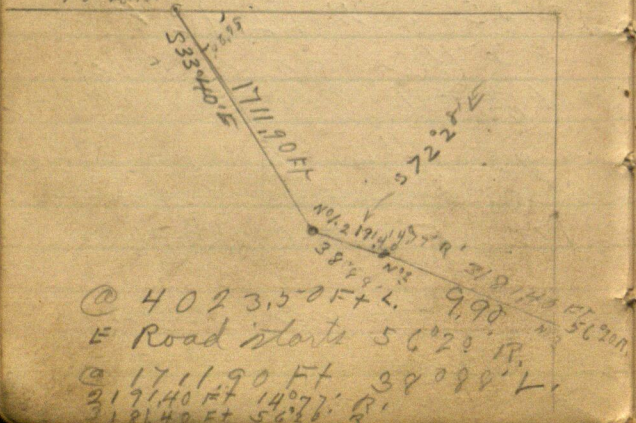 S33°40'E
1711.90 Ft
S72°28'E
No. 2
14°77' R.
38°88' L.
No 2
3181.40 Ft
9.90
56°20 R.
@ 4023.50 Ft L.
E Road starts 56°20' R.
@ 1711.90 Ft 38°088' L.
2191.40 Ft 14°77' R.
3181.40 Ft 56°20' R